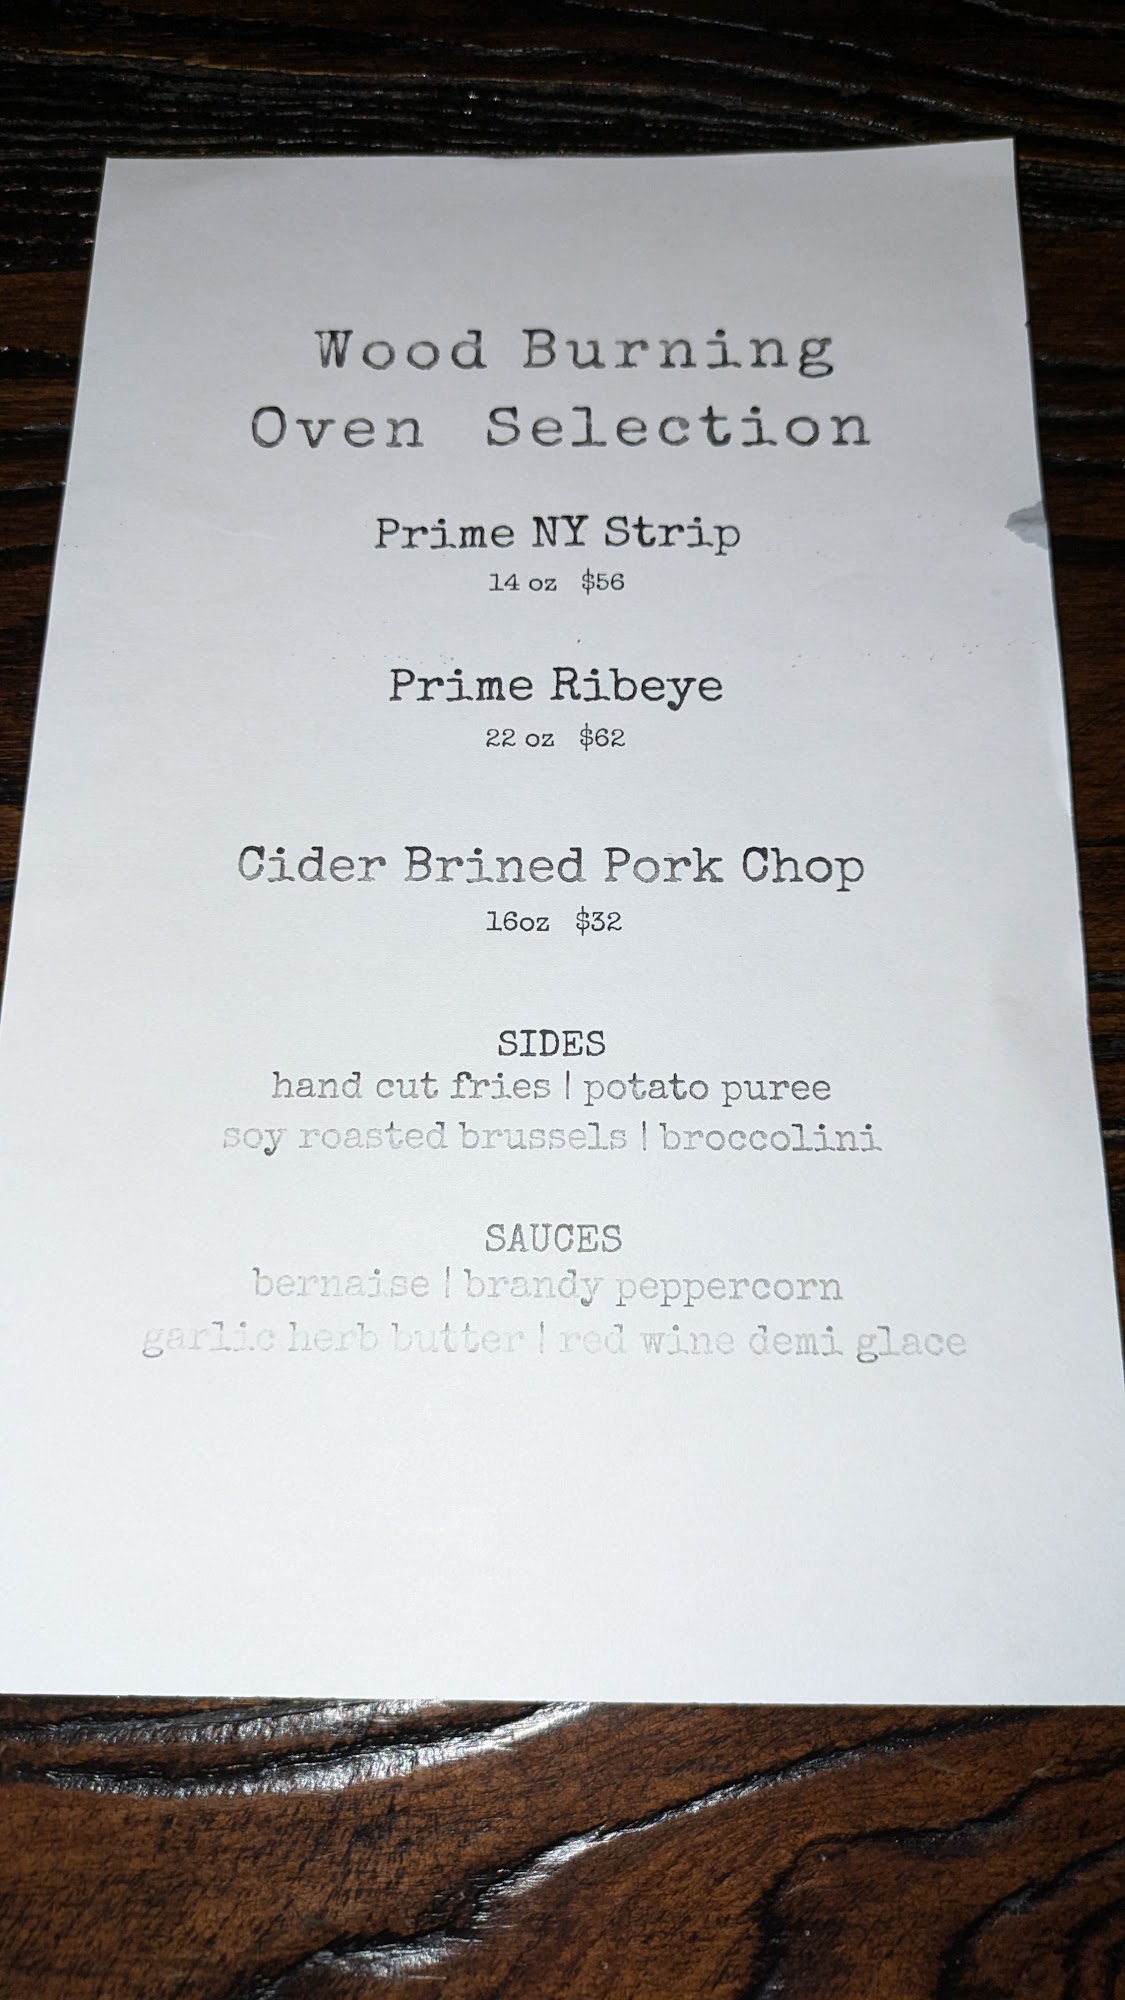 Wood Burning
Oven Selection
Prime NY Strip
14 oz $56
Prime Ribeye
22 oz $62
Cider Brined Pork Chop
16oz $32
SIDES
hand cut fries | potato puree
soy roasted brussels | broccolini
SAUCES
bernaise | brandy peppercorn
garlic herb butter | red wine demi glace